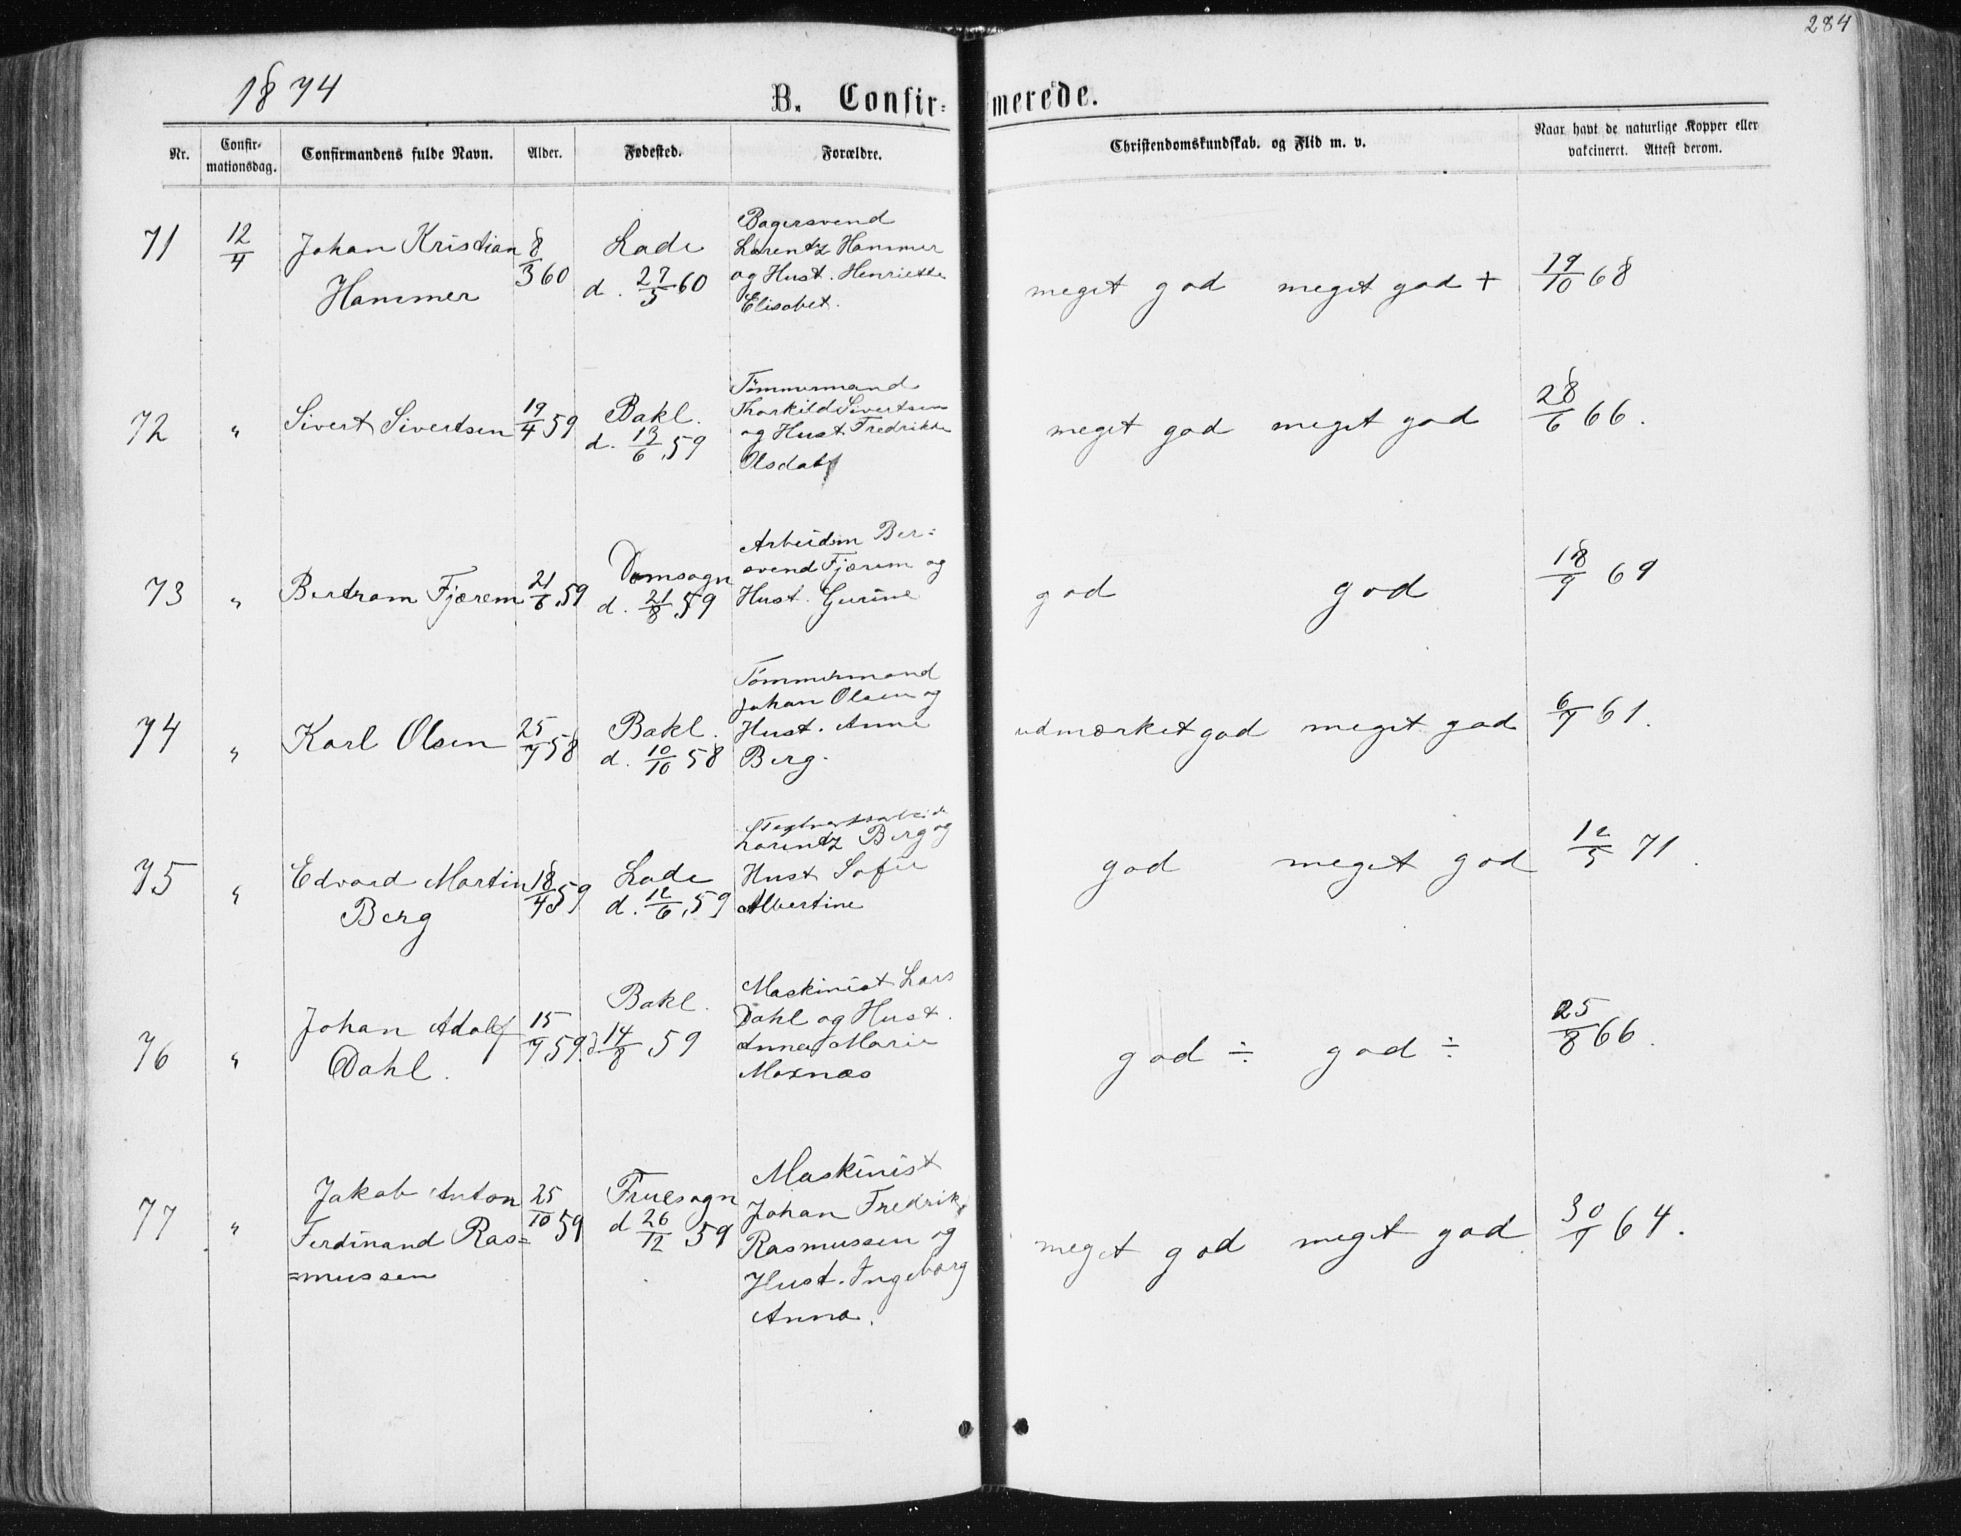 284
1874
B. Confir-merede.
Nr.
Confir-
mationsdag.
Confirmandens fulde Navn.
Alder.
Fødested.
Forældre.
Christendomskundskab. og Flid m. v.
Naar havt de naturlige Kopper eller
vakcineret. Attest derom.
71 12/4 Johan Kristian 8/3 60 Lade Bagersvend
Hammer d. 27/5 60 Lorentz Hammer
og Hust. Henriette
Elisabet.
meget god meget god + 19/10 68
72 " Sivert Sivertsen 19/4 59 Bakl. Tömmermand
d. 13/6 59 Thorkild Sivertsen
og Hust Fredrikke
Olsdat
meget god meget god 28/6 66.
73 " Bertram Fjærem 21/6 59 Domsogn Arbeidsm Ber=
d. 21/8 59 svend Fjærem og
Hust. Gurine
god god 18/9 69
74 " Karl Olsen 25/7 58 Bakl. Tömmermand
d. 10/10 58 Johan Olsen og
Hust. Anne
Berg.
udmærket god meget god 6/7 61.
75 " Edvard Martin 18/4 59 Lade
Berg d. 12/6 59 Lorentz Berg og
Hust Sofie
Albertine
god meget god 12/5 71.
76 " Johan Adolf 15/7 59. Bakl. Maskinist Lars
Dahl. d 14/8 59 Dahl og Hust.
Anna Marie
Moxnæs
god ÷ god ÷ 25/8 66.
77 " Jakob Anton 25/10 59 Fruesogn Maskinist
Ferdinand Ras= d 26/12 59 Johan Fredrik
=mussen Rasmussen og
Hust. Ingeborg
Anna.
meget god meget god 30/9 64.